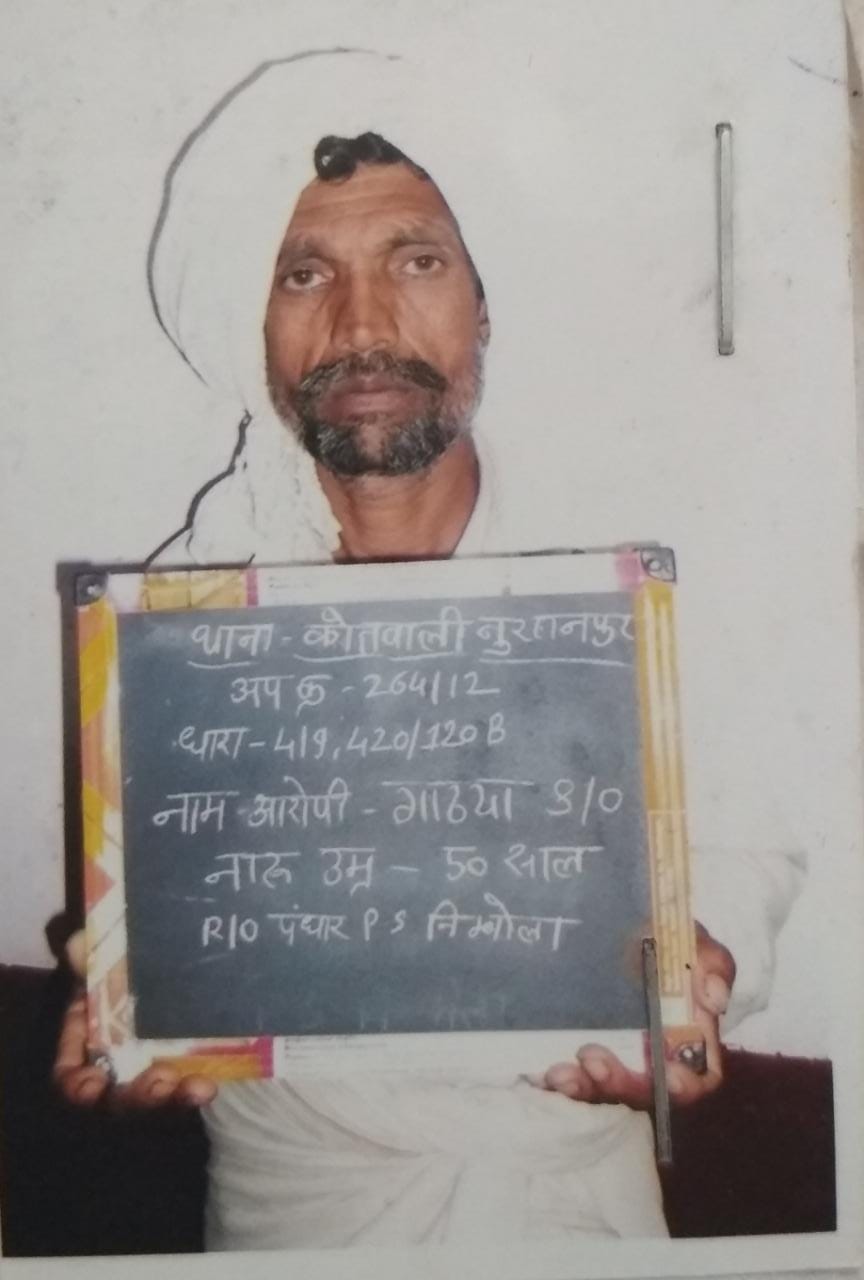 थाना - कोतवाली बुरहानपुर
अप क्र - 264/12
धारा - 419, 420/120 B
नाम आरोपी - गाठया S/O
नारू उम्र - 50 साल
R/O पंधार P S निम्बोला